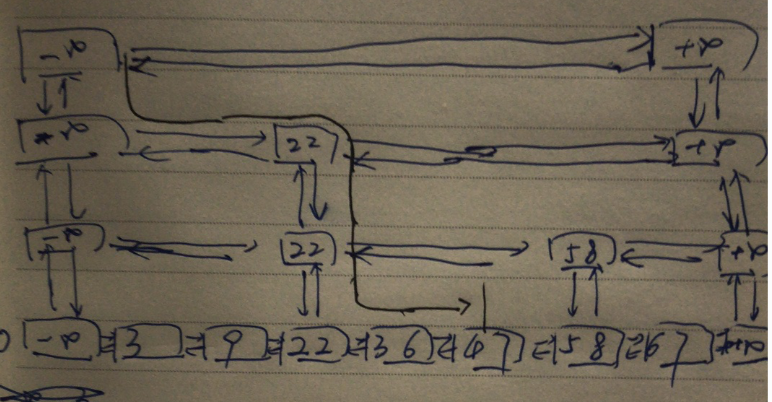 -∞ +∞
-∞ 22 +∞
-∞ 22 58 +∞
-∞ 3 9 22 36 47 58 67 +∞